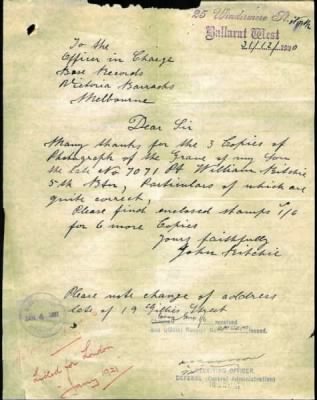 25 Windermere St. Nth
Ballarat West
21/12/1920
To the
Officer in Charge
Base Records
Victoria Barracks
Melbourne
Dear Sir
Many thanks for the 3 Copies of
Photograph of the Grave of my Son
the late No 7071 Pt William Ritchie
5th Btn, Particulars of which are
quite correct,
Please find enclosed stamps 1/6
for 6 more Copies
Yours faithfully
John Ritchie
Please note change of address
late of 19 Gillies Street
received
and Official Receipt issued.
RECEIVING OFFICER
DEFENCE (Central Administration)
London
Jany 1921